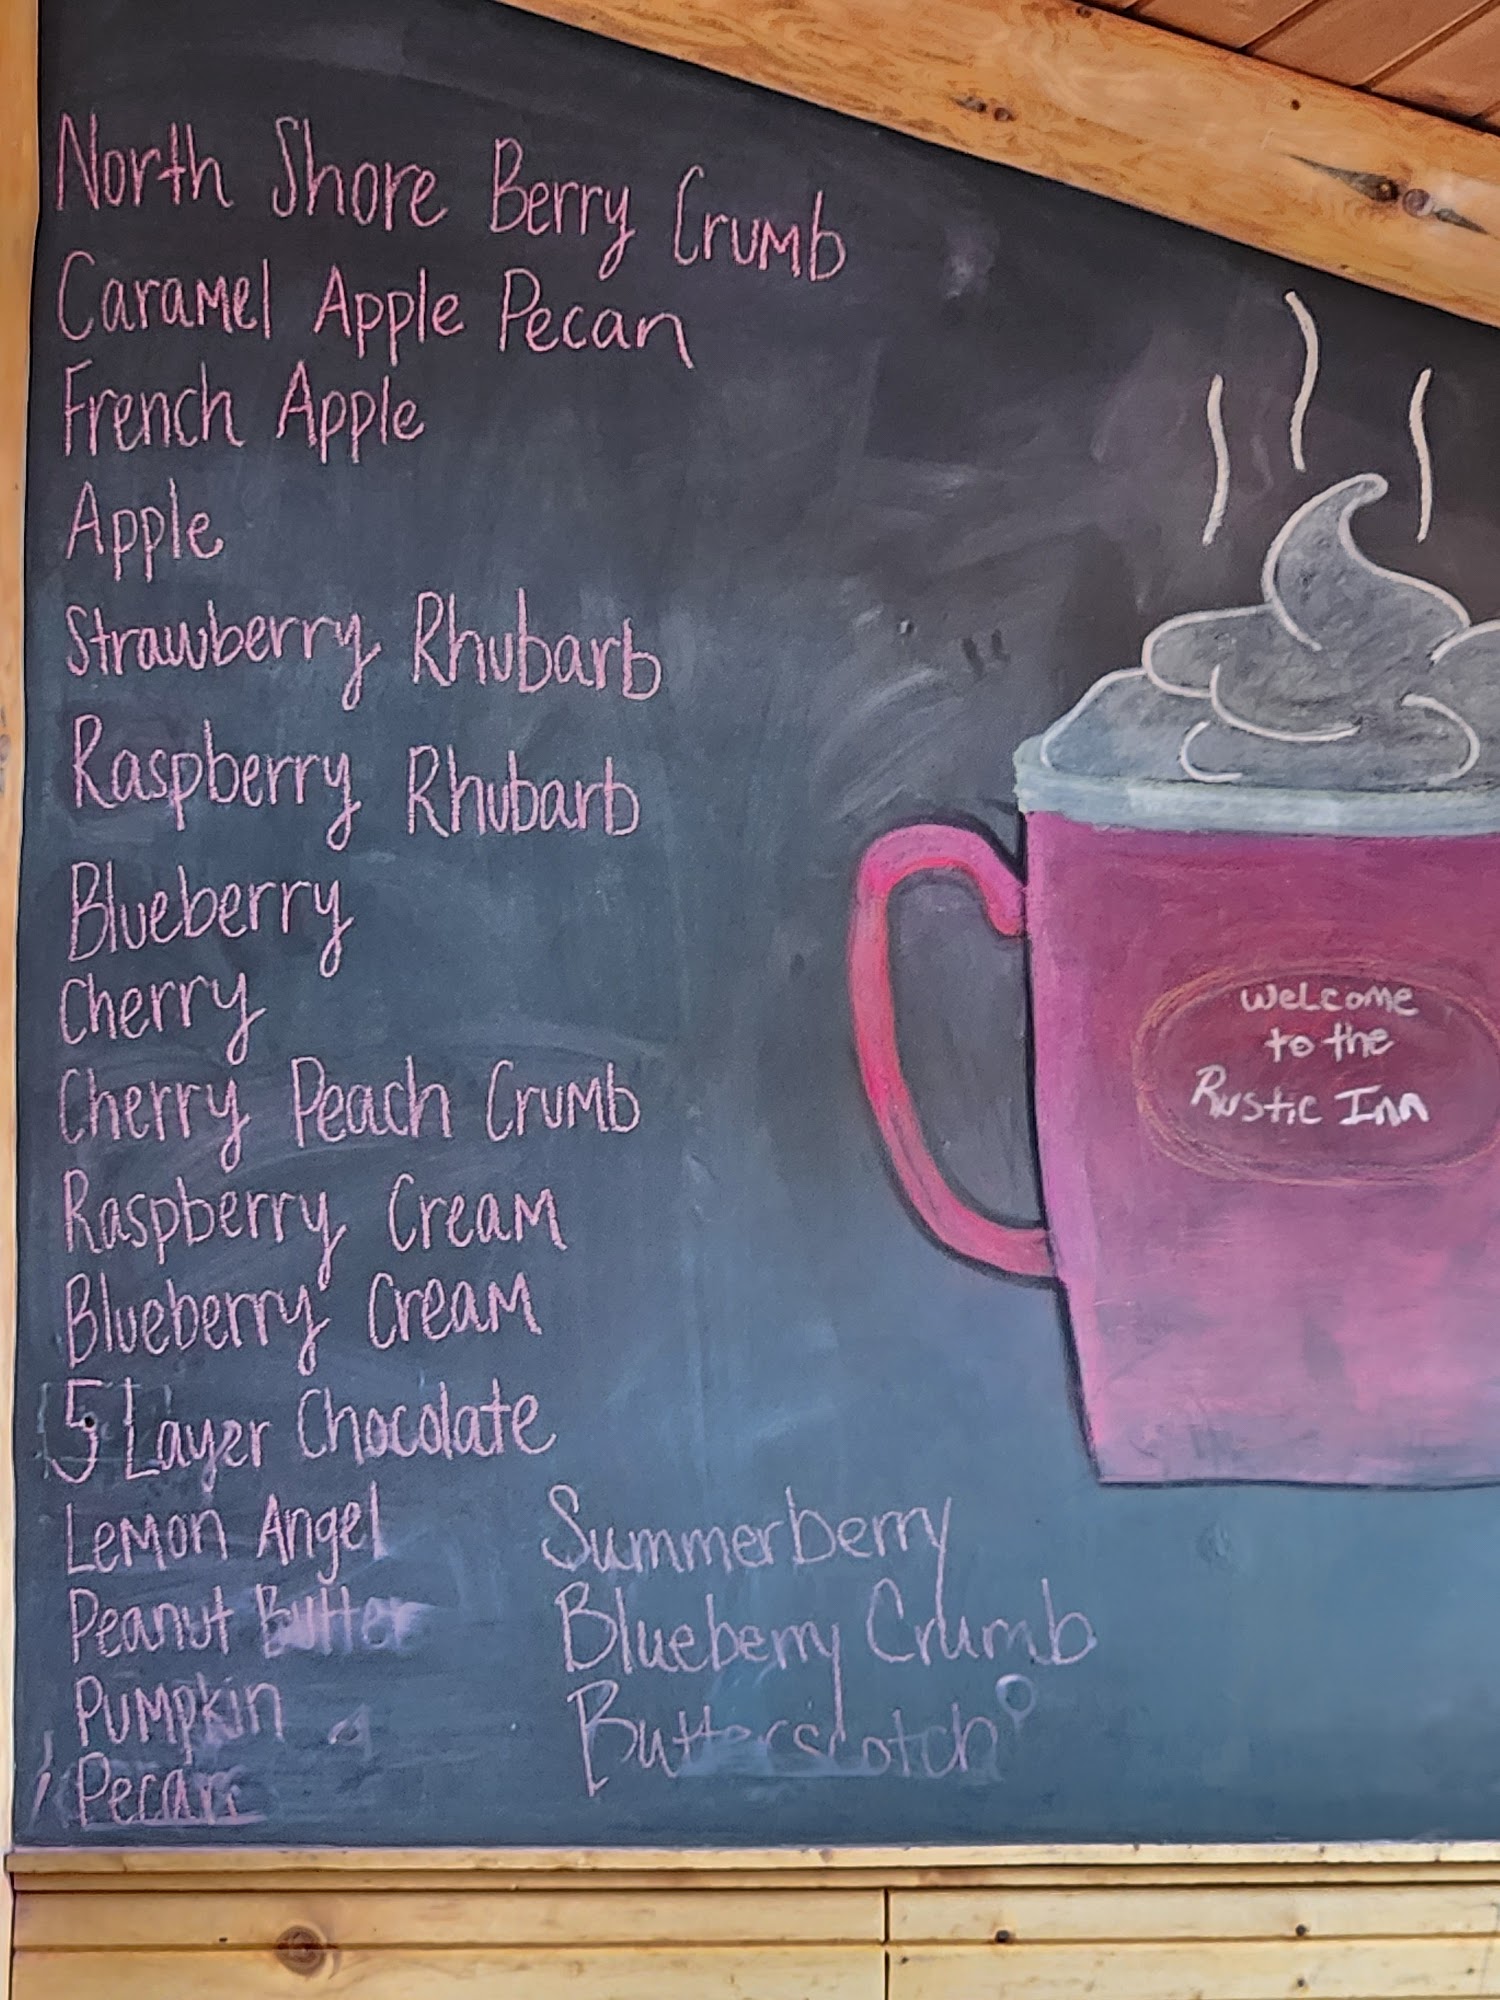 North Shore Berry Crumb
Caramel Apple Pecan
French Apple
Apple
Strawberry Rhubarb
Raspberry Rhubarb
Blueberry
Cherry
Cherry Peach Crumb
Raspberry Cream
Blueberry Cream
5 Layer Chocolate
Lemon Angel
Peanut Butter
Pumpkin
Pecan
Summerberry
Blueberry Crumb
Butterscotch
Welcome
to the
Rustic Inn